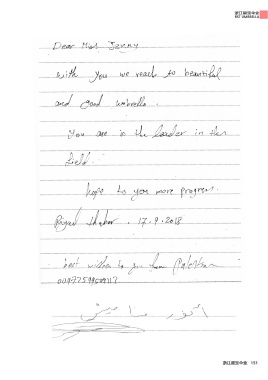 浙江丽宝伞业
RST UMBRELLA
Dear Miss Jenny
with you we reach to beautiful
and good umbrella.
You are is the leader in this
field
hope to you more progress.
Riyad Shaber . 17.9.2018
best wishes to you from Palestine
أنور
浙江丽宝伞业 153